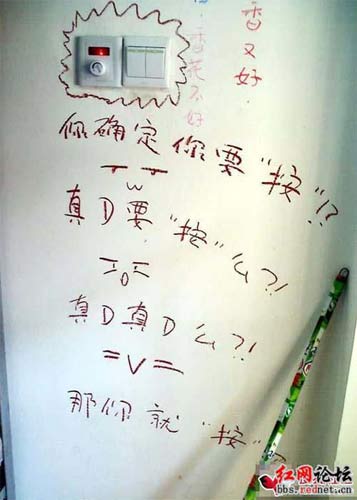 香又好
香花不好
你确定你要“按”!?
一w一
真D要“按”么?!
真D真D么?!
=V=
那你就“按”
红网论坛
bbs.rednet.cn